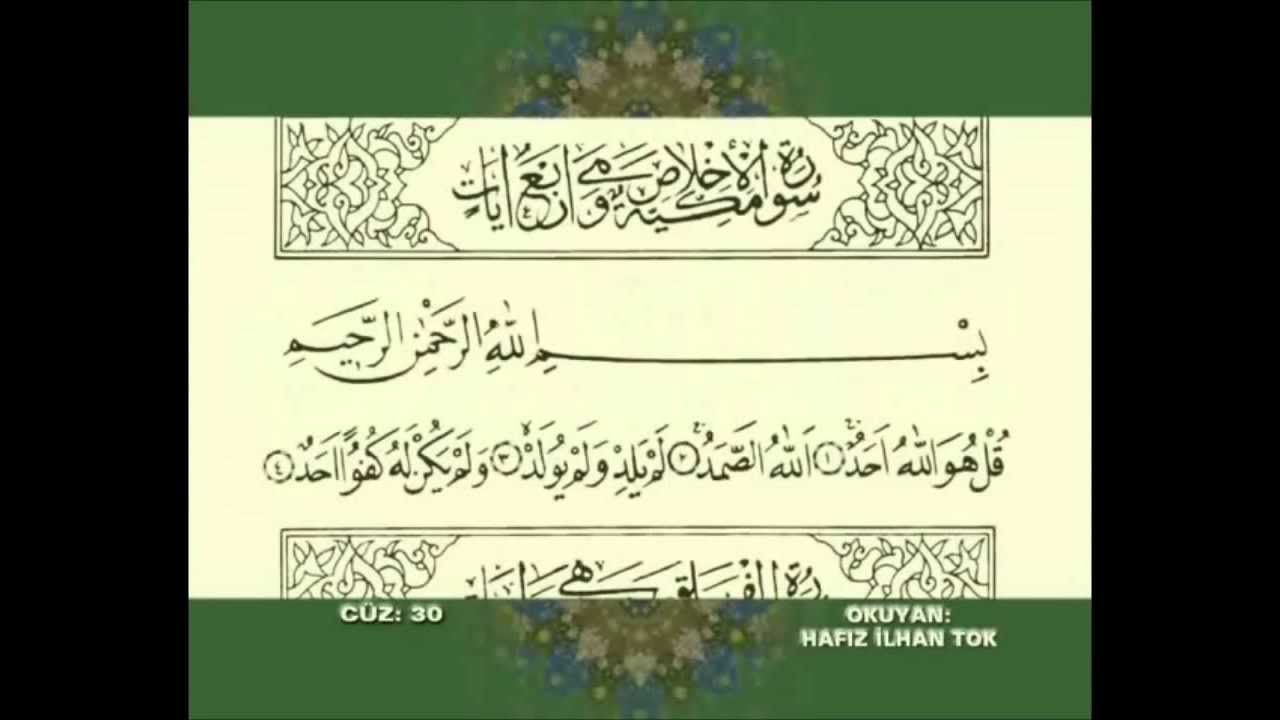 سورة الإخلاص مكية وهي أربع آيات
بِسْمِ اللّٰهِ الرَّحْمٰنِ الرَّحِيمِ
قُلْ هُوَ اللّٰهُ اَحَدٌۚ ﴿١﴾ اَللّٰهُ الصَّمَدُۚ ﴿٢﴾ لَمْ يَلِدْ وَلَمْ يُولَدْۙ ﴿٣﴾ وَلَمْ يَكُنْ لَهُ كُفُوًا اَحَدٌ ﴿٤﴾
CÜZ: 30
OKUYAN:
HAFIZ İLHAN TOK